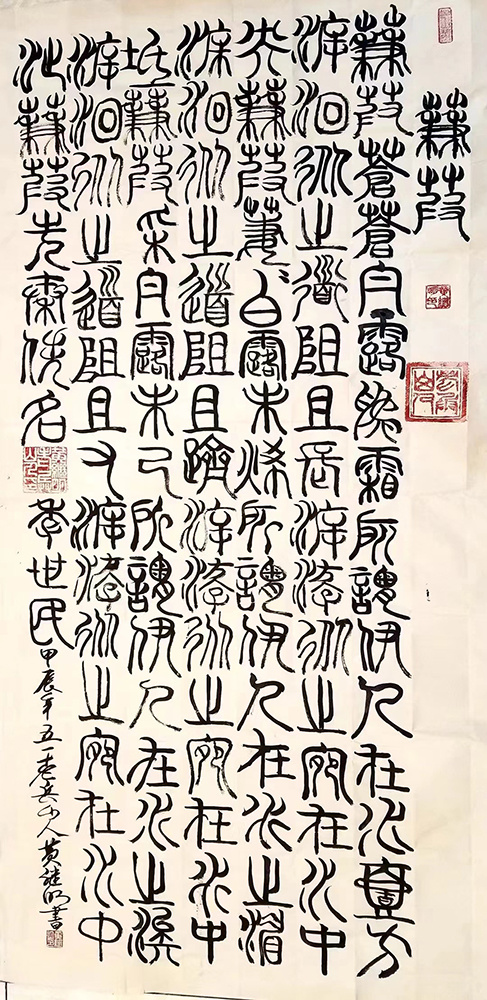 蒹葭
蒹葭蒼蒼白露為霜所謂伊人在水壹方
溯洄從之道阻且長溯游從之宛在水中
央蒹葭萋〻白露未晞所謂伊人在水之湄
溯洄從之道阻且躋溯游從之宛在水中
坻蒹葭采白露未已所謂伊人在水之涘
溯洄從之道阻且右溯游從之宛在水中
沚蒹葭先秦佚名
世民
甲辰年五一老兵山人黄继明書